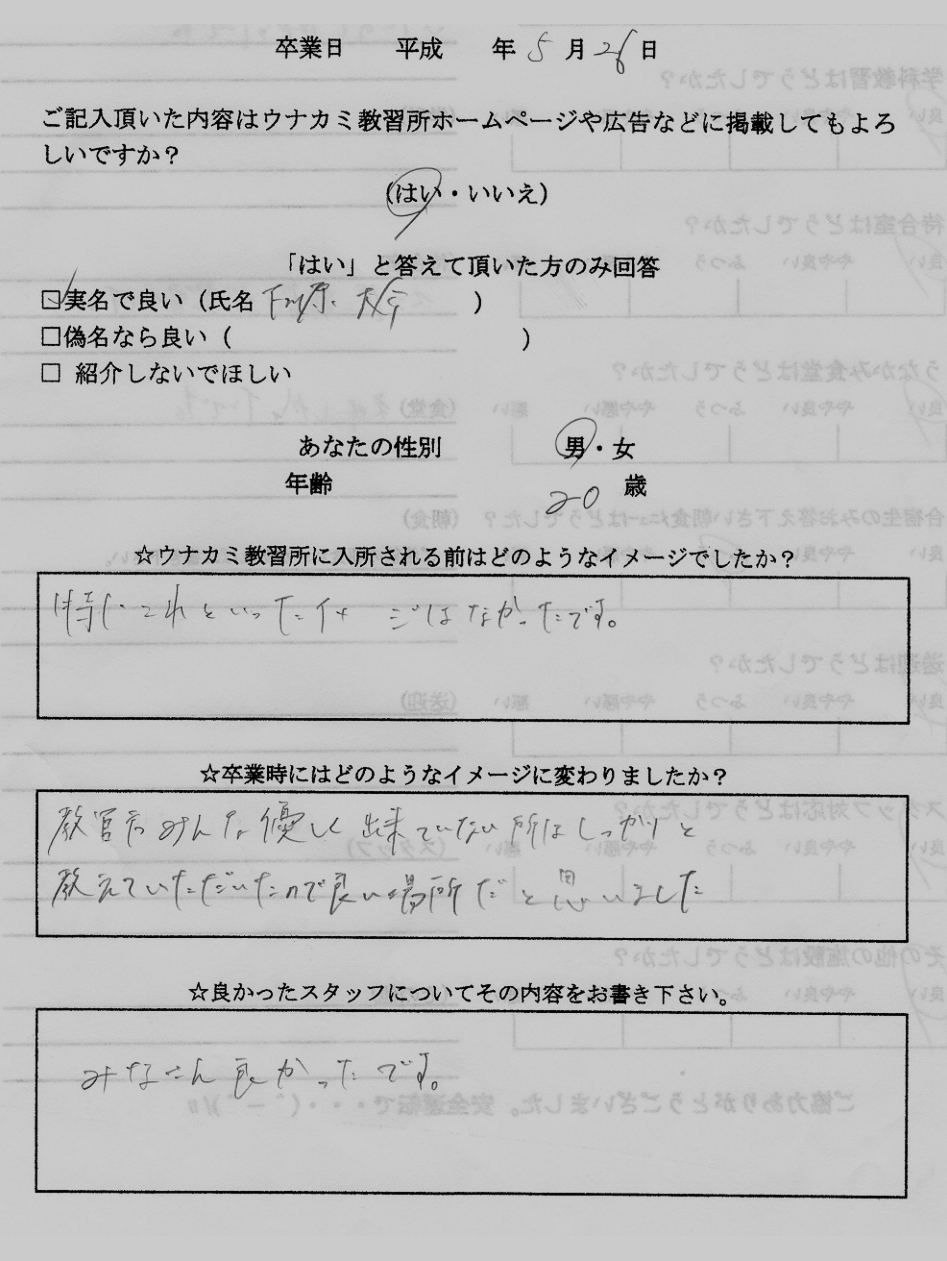 卒業日 平成 年5月26日
ご記入頂いた内容はウナカミ教習所ホームページや広告などに掲載してもよろ
しいですか？
(はい・いいえ)
「はい」と答えて頂いた方のみ回答
☑実名で良い（氏名 ）
□偽名なら良い（ ）
□ 紹介しないでほしい
あなたの性別 男・女
年齢 20 歳
☆ウナカミ教習所に入所される前はどのようなイメージでしたか？
特にこれといったイメージはなかったです。
☆卒業時にはどのようなイメージに変わりましたか？
教官方みんな優しく出来ていない所はしっかりと
教えていただいたので良い場所だと思いました
☆良かったスタッフについてその内容をお書き下さい。
みなさん良かったです。